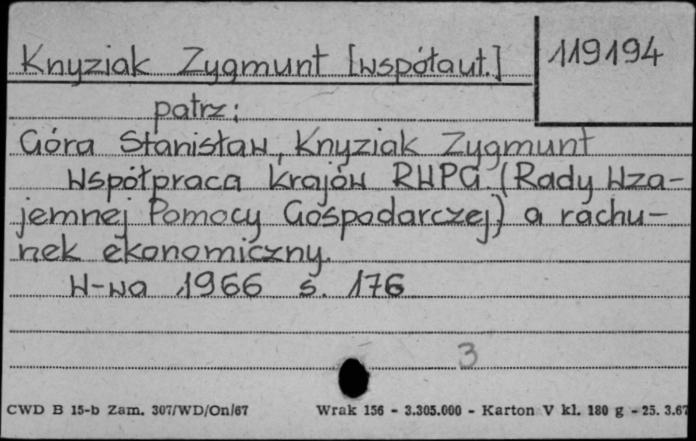 Knyziak Zygmunt [współaut.]
119194
patrz:
Góra Stanisław, Knyziak Zygmunt
Współpraca krajów RWPG (Rady Wza-
jemnej Pomocy Gospodarczej) a rachu-
nek ekonomiczny.
W-wa 1966 s. 176
3
CWD B 15-b Zam. 307/WD/On/67 Wrak 156 - 3.305.000 - Karton V kl. 180 g - 25. 3.67